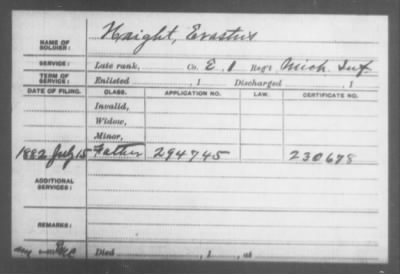 NAME OF SOLDIER: Haight, Erastus
SERVICE: Late rank, Co. E, 1 Reg't Mich. Inf.
TERM OF SERVICE: Enlisted , 1 Discharged , 1
DATE OF FILING. CLASS. APPLICATION NO. LAW. CERTIFICATE NO.
Invalid,
Widow,
Minor,
1882 July 15 Father 294745 230678
ADDITIONAL SERVICES:
REMARKS:
Died , 1 , at